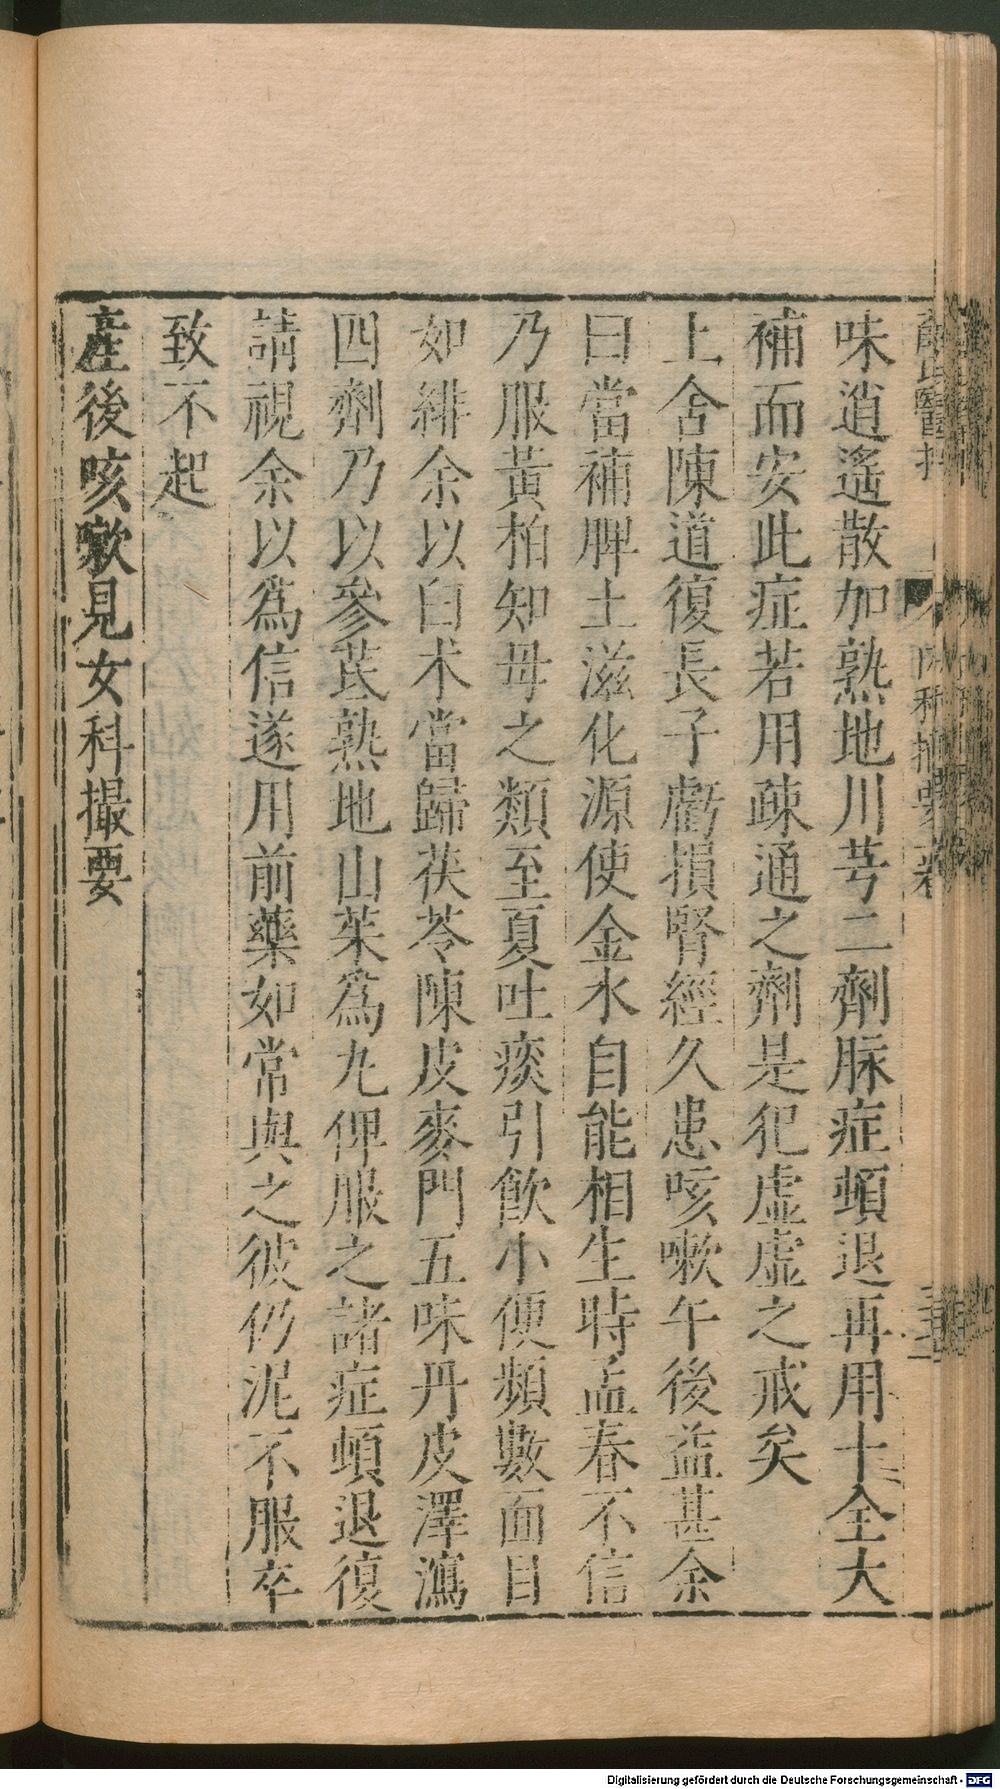 味逍遙散加熟地川芎二劑脉症頓退再用十全大
補而安此症若用疎通之劑是犯虛虛之戒矣
上舍陳道復長子虧損腎經久患咳嗽午後益甚余
曰當補脾土滋化源使金水自能相生時孟春不信
乃服黃柏知母之類至夏吐痰引飲小便頻數面目
如緋余以白术當歸茯苓陳皮麥門五味丹皮澤瀉
四劑乃以參芪熟地山茱爲丸俾服之諸症頓退復
請視余以爲信遂用前藥如常與之彼仍泥不服卒
致不起
產後咳嗽見女科撮要
Digitalisierung gefördert durch die Deutsche Forschungsgemeinschaft - DFG